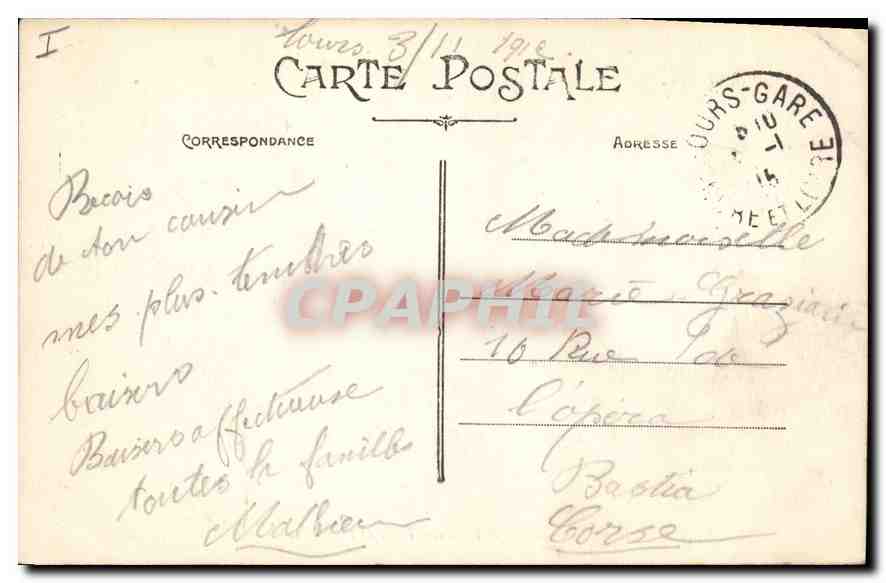 I
Tours 3/11 191
CARTE POSTALE
CORRESPONDANCE
ADRESSE
TOURS-GARE
10
-1
15
INDRE ET LOIRE
Recois
de ton cousin
mes plus tendres
baisers
Baisers affectueuse
toutes la familles
Mathieu
Mademoiselle
Marie Graziani
10 Rue de
l'opéra
Bastia
Corse
CPAPHIL